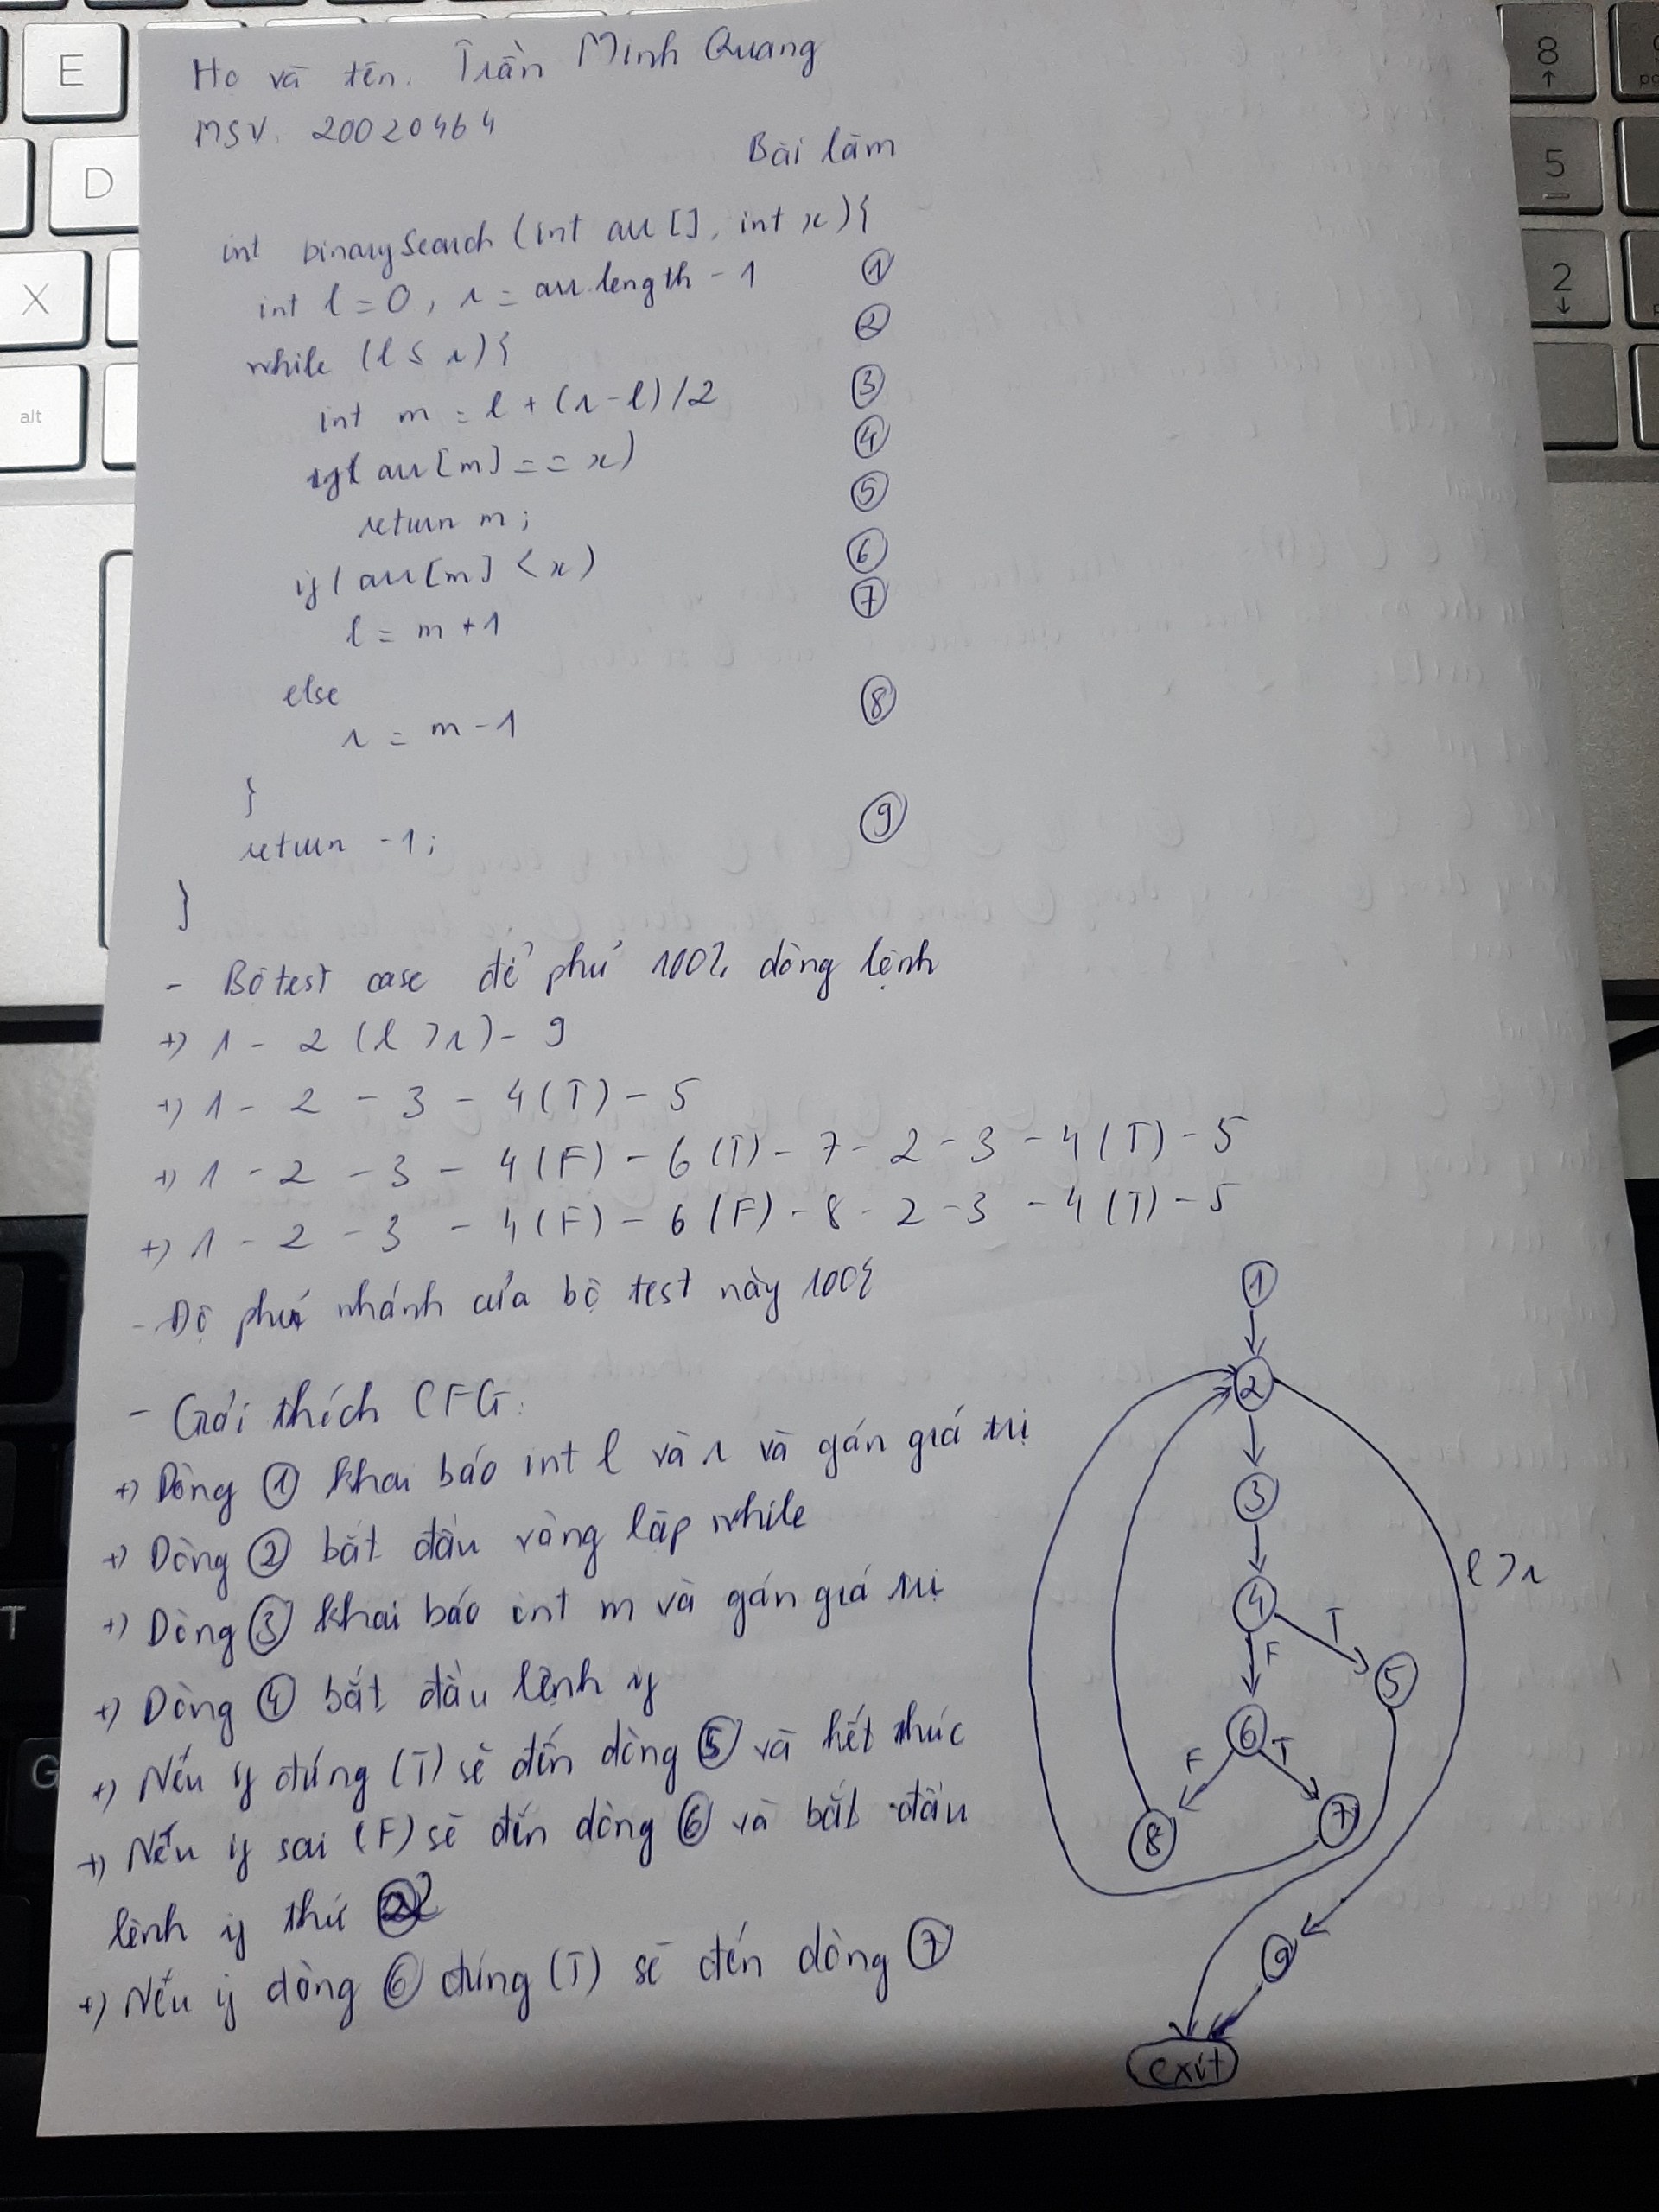 Họ và tên. Trần Minh Quang
MSV. 20020464
Bài làm
int binarySearch (int arr [], int x) {
int l = 0, r = arr.length - 1 ①
while (l ≤ r) { ②
int m = l + (r - l) / 2 ③
if( arr [m] == x) ④
return m; ⑤
if ( arr [m] < x) ⑥
l = m + 1 ⑦
else
r = m - 1 ⑧
}
return -1; ⑨
}
- Bộ test case để phủ 100% dòng lệnh
+) 1 - 2 (l > r) - 9
+) 1 - 2 - 3 - 4 (T) - 5
+) 1 - 2 - 3 - 4 (F) - 6 (T) - 7 - 2 - 3 - 4 (T) - 5
+) 1 - 2 - 3 - 4 (F) - 6 (F) - 8 - 2 - 3 - 4 (T) - 5
- Độ phủ nhánh của bộ test này 100%
- Giải thích CFG:
+) Dòng ① khai báo int l và r và gán giá trị
+) Dòng ② bắt đầu vòng lặp while
+) Dòng ③ khai báo int m và gán giá trị
+) Dòng ④ bắt đầu lệnh if
+) Nếu if đúng (T) sẽ đến dòng ⑤ và kết thúc
+) Nếu if sai (F) sẽ đến dòng ⑥ và bắt đầu
lệnh if thứ 2
+) Nếu if dòng ⑥ đúng (T) sẽ đến dòng ⑦
①
②
③
l > r
④
T
F
⑤
⑥
F T
⑦
⑧
⑨
exit
E
D
X
alt
T
G
8
5
2